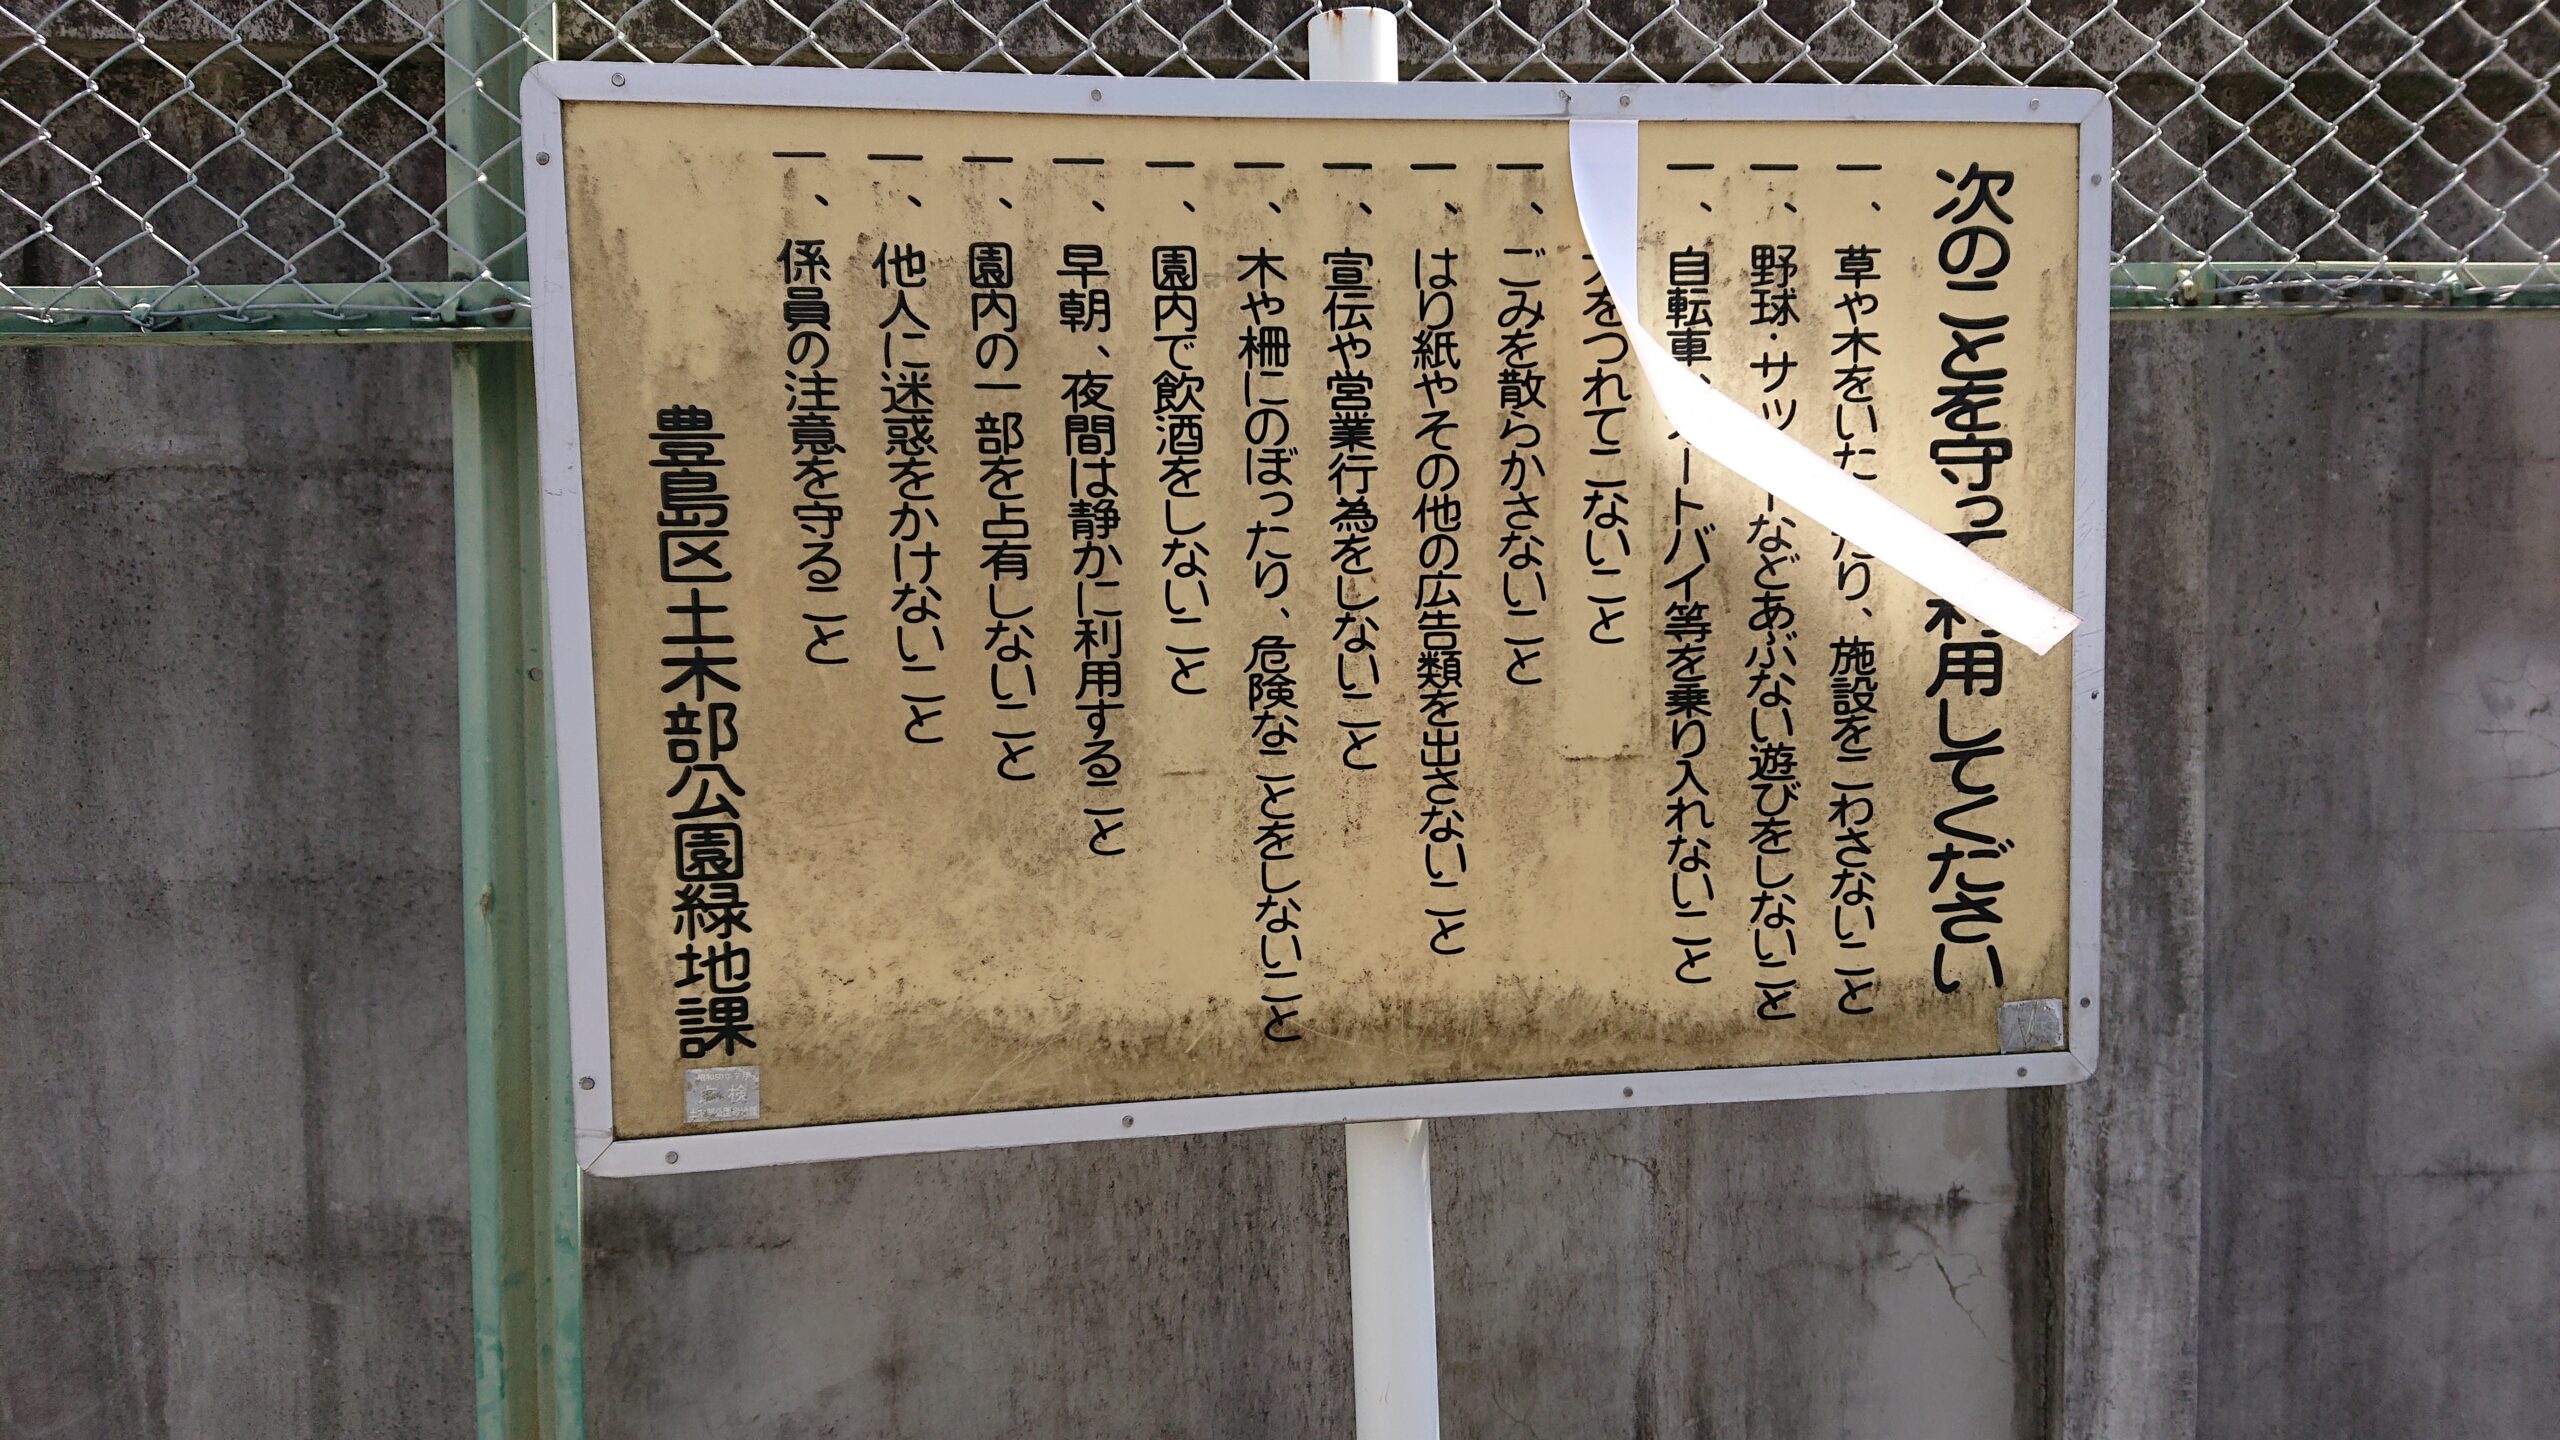 次のことを守って利用してください
一、草や木をいためたり、施設をこわさないこと
一、野球・サッカーなどあぶない遊びをしないこと
一、自転車、オートバイ等を乗り入れないこと
をつれてこないこと
一、ごみを散らかさないこと
一、はり紙やその他の広告類を出さないこと
一、宣伝や営業行為をしないこと
一、木や柵にのぼったり、危険なことをしないこと
一、園内で飲酒をしないこと
一、早朝、夜間は静かに利用すること
一、園内の一部を占有しないこと
一、他人に迷惑をかけないこと
一、係員の注意を守ること
豊島区土木部公園緑地課
点検